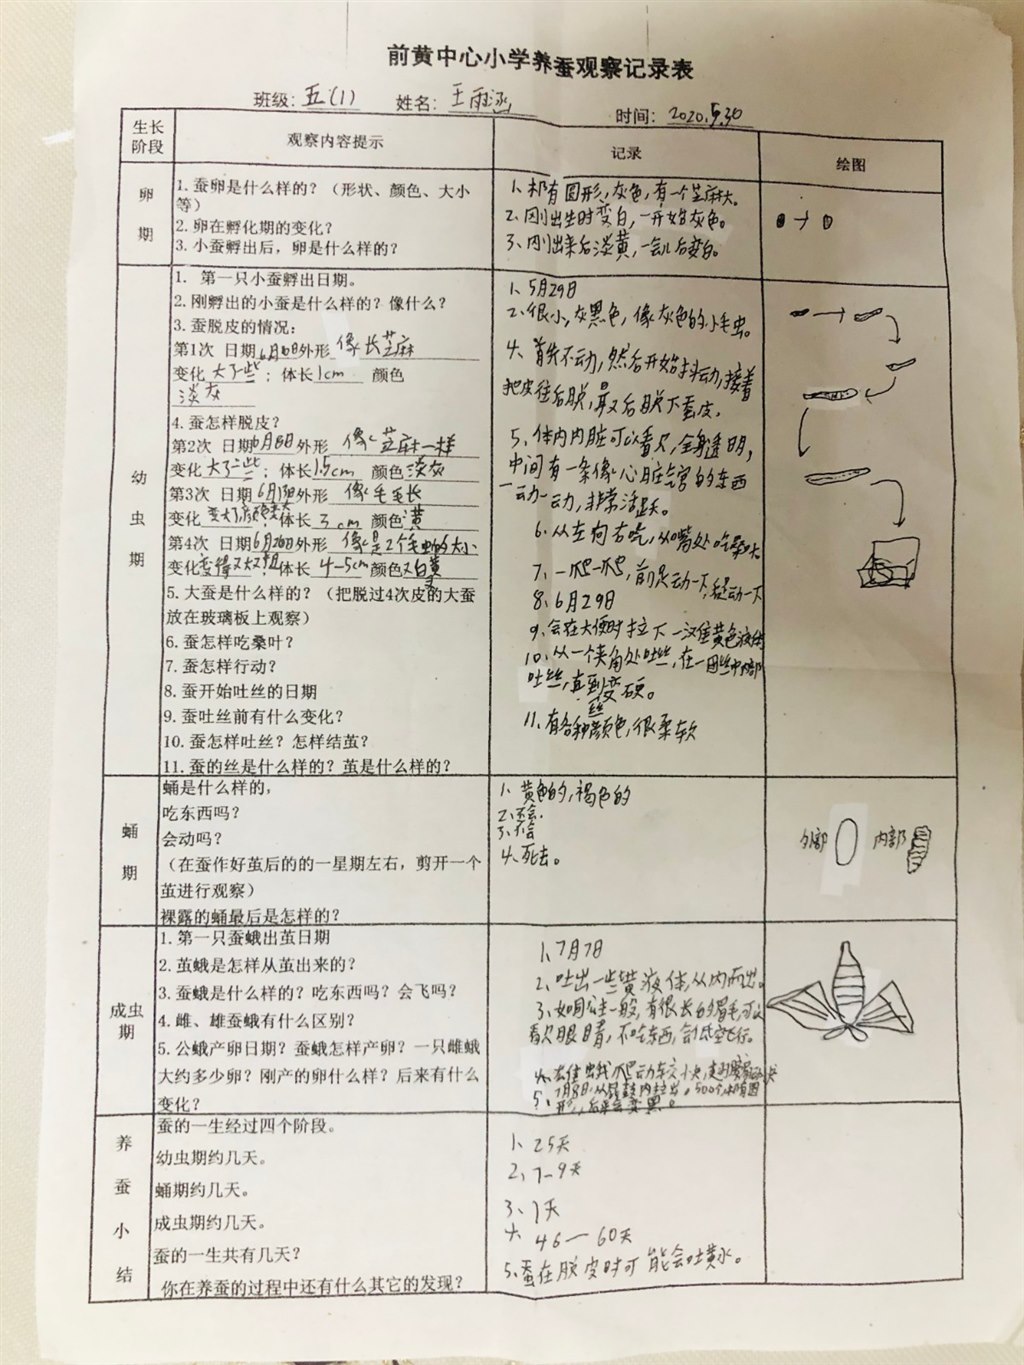 前黄中心小学养蚕观察记录表
班级：五(1) 姓名：王雨涵 时间：2020.5.30
生长阶段 观察内容提示 记录 绘图
卵期
1. 蚕卵是什么样的？（形状、颜色、大小
等）
2. 卵在孵化期的变化？
3. 小蚕孵出后，卵是什么样的？
1、椭圆形，灰色，有一个芝麻大。
2、刚出生时变白，一开始灰色。
3、刚出来后淡黄，一会儿后变白。
幼虫期
1. 第一只小蚕孵出日期。
2. 刚孵出的小蚕是什么样的？像什么？
3. 蚕脱皮的情况：
第1次 日期 外形 像长芝麻
变化 大了些；体长 1cm 颜色
淡灰
4. 蚕怎样脱皮？
第2次 日期 外形 像芝麻一样
变化 大了一些；体长 1.5cm 颜色 淡灰
第3次 日期 外形 像毛毛长
变化 体长 3cm 颜色 黄
第4次 日期 外形 像是2个 的大小
变化 变得又大又粗 体长 4-5cm 颜色 白黄
5. 大蚕是什么样的？（把脱过4次皮的大蚕
放在玻璃板上观察）
6. 蚕怎样吃桑叶？
7. 蚕怎样行动？
8. 蚕开始吐丝的日期
9. 蚕吐丝前有什么变化？
10. 蚕怎样吐丝？怎样结茧？
11. 蚕的丝是什么样的？茧是什么样的？
1、5月29日
2、很小，灰黑色，像灰色的小毛虫。
4、首先不动，然后开始抖动，接着
把皮往后脱，最后脱下蚕皮。
5、体内内脏可以看见，全身透明，
中间有一条像心脏器官的东西
一动一动，非常活跃。
6、从左向右吃，从嘴处吃
7、一爬一爬，前足动一下，后足动一下
8、6月29日
9、会在大便时拉下一 黄色液体
10、从一个夹角处吐丝，在一团丝中内部
吐丝，直到变硬。
丝
11、有各种颜色，很柔软
蛹期
蛹是什么样的，
吃东西吗？
会动吗？
（在蚕作好茧后的的一星期左右，剪开一个
茧进行观察）
裸露的蛹最后是怎样的？
1、黄色的，褐色的
2、不会.
3、不会
4、死去。
外部 内部
成虫期
1. 第一只蚕蛾出茧日期
2. 茧蛾是怎样从茧出来的？
3. 蚕蛾是什么样的？吃东西吗？会飞吗？
4. 雌、雄蚕蛾有什么区别？
5. 公蛾产卵日期？蚕蛾怎样产卵？一只雌蛾
大约多少卵？刚产的卵什么样？后来有什么
变化？
1、7月7日
2、吐出一些黄液体，从内而出。
3、如同 一般，有很长的眉毛，可以
看见眼睛，不吃东西，会低空飞行。
5、7月8日
养蚕小结
蚕的一生经过四个阶段。
幼虫期约几天。
蛹期约几天。
成虫期约几天。
蚕的一生共有几天？
你在养蚕的过程中还有什么其它的发现？
1、25天
2、7-9天
3、7天
4、46—60天
5、蚕在脱皮时可能会吐黄水。